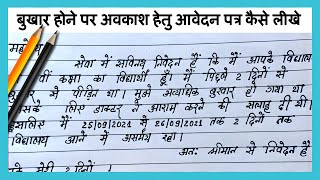 बुखार होने पर अवकाश हेतु आवेदन पत्र कैसे लीखे
सेवा में सविनय निवेदन हैं कि मैं आपके विद्यालय
वीं कक्षा का विद्यार्थी हूँ। मैं पिछले 2 दिनों से
से पीड़ित था। मुझे अत्यधिक बुखार हो गया था
लिए डाक्टर ने आराम करने की सलाह दी थी।
इसलिए मैं 25/09/2021 से 26/09/2021 तक 2 दिनों तक
विद्यालय आने में असमर्थ रहा।
अतः श्रीमान से निवेदन है
के मेरी 2 दिनों